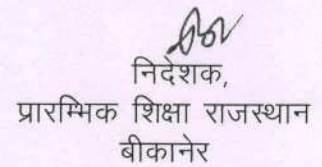 निदेशक,
प्रारम्भिक शिक्षा राजस्थान
बीकानेर